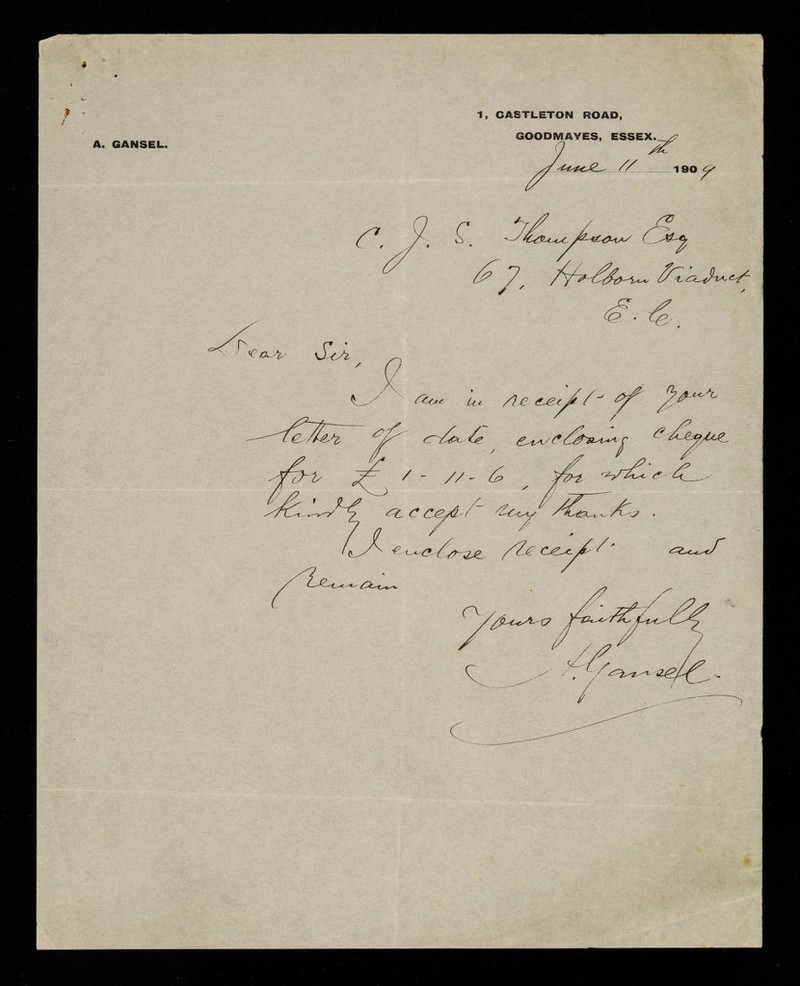 1, CASTLETON ROAD,
GOODMAYES, ESSEX.
A. GANSEL.
June 11th 1909
C. J. S. Thompson Esq
67, Holborn Viaduct,
E. C.
Dear Sir,
I am in receipt of your
letter of date, enclosing cheque
for £1-11-6, for which
kindly accept my thanks.
I enclose receipt and
remain
Yours faithfully
A. Gansel.